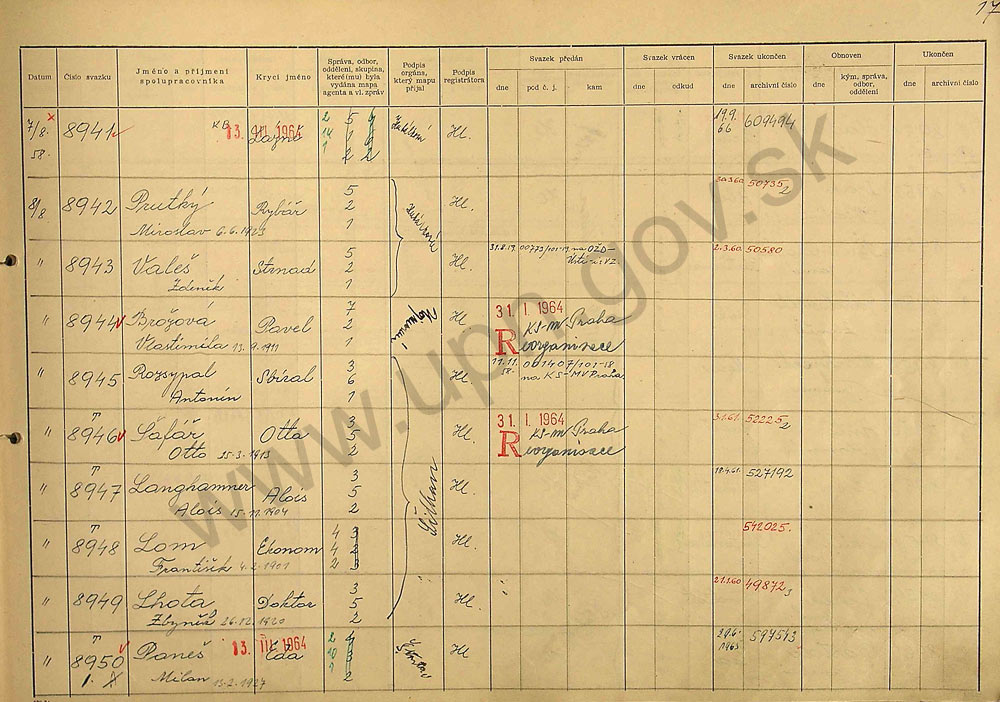 17
Datum
Číslo svazku
Jméno a příjmení spolupracovníka
Krycí jméno
Správa, odbor, oddělení, skupina, které(mu) byla vydána mapa agenta a vl. zpráv
Podpis orgánu, který mapu přijal
Podpis registrátora
Svazek předán
dne
pod č. j.
kam
Svazek vrácen
dne
odkud
Svazek ukončen
dne
archivní číslo
Obnoven
dne
kým, správa, odbor, oddělení
Ukončen
dne
archivní číslo
7/8. 58. 8941 KB 13. III. 1964 Lázně 2 5 14 1 1 2 2 Hl. 19.9. 66 609494
8/8. 8942 Prutký Rybář 5 2 1 Hl. 50735 2
Miroslav 6.6.1923
" 8943 Valeš Strnad 5 2 1 Hl. 00773/101-19 na OŽD- 2.3.60. 50580
Zdeněk
" 8944 Brožová Pavel 7 2 1 Hl 31. I. 1964 KS-MV Praha
Vlastimila 13.9.1911 Reorganisace
" 8945 Rozsypal Sbíral 3 6 1 Hl. 11.11. 58. 001407/101-18
Antonín na KS-MV Praha
" T 8946 Šafář Otta 3 5 2 Hl. 31. I. 1964 KS-MV Praha 52225 2
Otto 15.3.1913 Reorganisace
" T 8947 Langhammer Alois 3 5 2 Hl. 18.4.61. 527192
Alois 15.11.1904
" T 8948 Lom Ekonom 4 3 4 2 2 3 Hl. 542025.
František 4.2.1901
" 8949 Lhota Doktor 3 5 2 Hl. 21.1.60 49872 3
Zbyněk 26.12.1920
" T 8950 Paneš 13. III. 1964 Eda 2 10 1 2 Hl 29.6. 1965 597513
1. X Milan 13.2.1927
www.upn.gov.sk